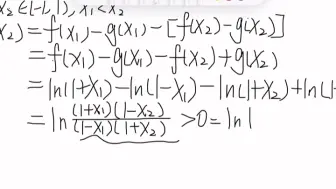 x₂∈(-1,1), x₁<x₂
x₂) = f(x₁)-g(x₁)-[f(x₂)-g(x₂)]
= f(x₁)-g(x₁)-f(x₂)+g(x₂)
= ln(1+x₁)-ln(1-x₁)-ln(1+x₂)+ln(1-
= ln (1+x₁)(1-x₂)/(1-x₁)(1+x₂) >0=ln1